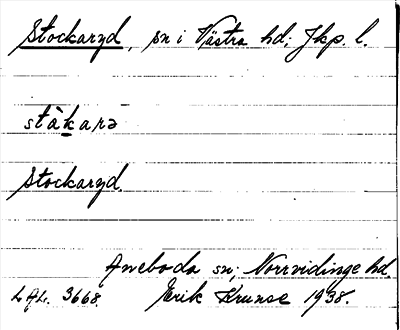 Stockaryd, sn i Västra hd; Jkp. l.
stå̀ka̱rə
Stockaryd.
Aneboda sn; Norrvidinge hd.
LAL. 3668. Erik Krunse 1938.